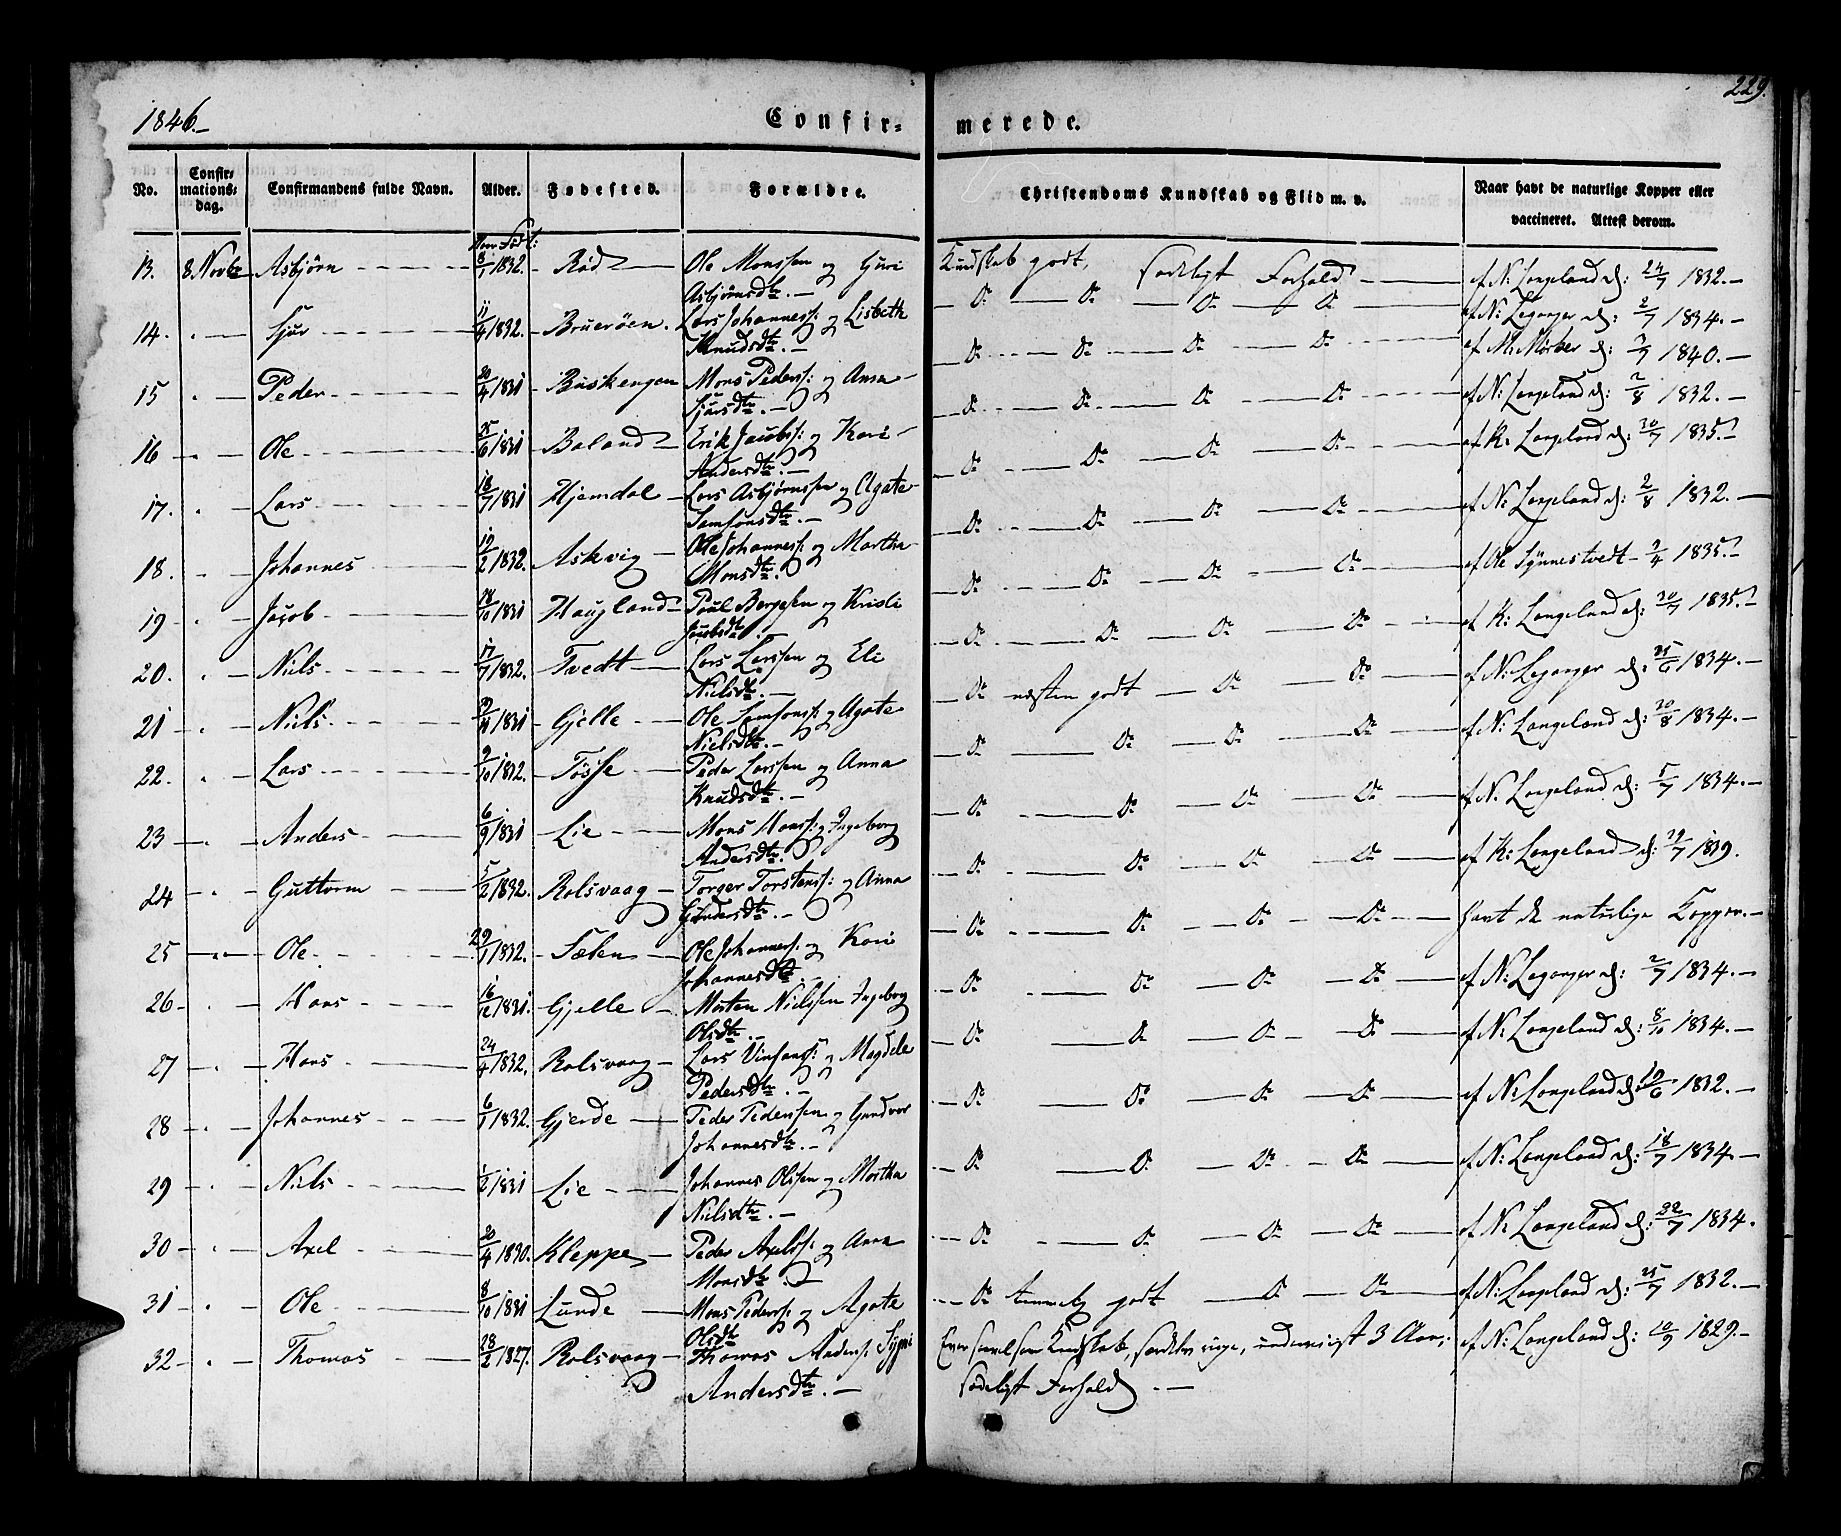 229.
1846.-
Confir- merede.
No. Confir- mations- dag. Confirmandens fulde Navn. Alder. Fødested. Forældre. Christendoms Kundskab og Flid m. v. Naar havt de naturlige Kopper eller vaccineret. Attest derom.
13. 8 Novbr Asbjørn 8/1 1832. Rød Ole Monssen og Guri Asbjørnsdtr. Kundskab godt, sædeligt Forhold af N: Langeland d: 24/7 1832.
14. Sjur 11/4 1832. Bruerøen. Lars Johanness: og Lisbeth Knudsdtr. Do Do Do Do af N: Leganger d: 2/7 1834.
15 Peder 30/4 1831 Buskengen Mons Peders: og Anna Sjursdtr. Do Do Do Do af M: Mørker d: 3/7 1840.
16 Ole 25/6 1831 Boland Erik Jacobs: og Kari Andersdtr. Do Do Do Do af N: Langeland d: 2/8 1832.
17. Lars 18/7 1831 Hjemdal Lars Asbjørnssen og Agate Samsonsdtr. Do Do Do Do af K: Langeland d: 30/7 1835.
18. Johannes 19/2 1832. Askvig Ole Johanness: og Martha Monsdtr. Do Do Do Do af N: Langeland d: 2/8 1832.
19 Jacob 18/10 1831 Haugland Poul Børgesen og Kristi Jacobsdtr. Do Do Do Do af Ole Synnestvedt 7/4 1835.
20. Niels 17/7 1832. Tvedt Lars Larssen og Eli Nielsdtr. Do Do Do Do af K: Langeland d: 30/7 1835.
21 Niels 19/4 1831 Gjelle Ole Samsons: og Agate Nielsdtr. Do næsten godt Do Do af N: Leganger d: 25/6 1834.
22. Lars 9/10 1832. Tøsse Peder Larssen og Anna Knudsdtr. Do Do Do Do af N: Langeland d: 30/8 1834.
23 Anders 6/9 1831 Lie Mons Mons: og Ingeborg Andersdtr. Do Do Do Do af N. Langeland d: 5/7 1834.
24 Guttorm 5/2 1832. Rolsvaag Torger Torstens: og Anna Gundersdtr. Do Do Do Do af K: Langeland d: 29/7 1839.
25 Ole 29/1 1832. Sælen Ole Johanness: og Kari Johannesdtr. Do Do Do Do havt de naturlige Kopper.
26 Hans 16/12 1831. Gjelle Morten Nielssen Ingeborg Olsdtr. Do Do Do Do af N: Leganger d: 2/7 1834.
27 Hans 24/4 1832. Rolsvaag Lars og Magdele Pedersdtr. Do Do Do Do af N: Langeland d: 8/10 1834.
28 Johannes 6/1 1832. Gjerde Peder Pederssen og Gundvor Johannesdtr. Do Do Do Do af N: Langeland d: 19/6 1832.
29 Niels 1/2 1831 Lie Johannes Olssen og Martha Nielsdtr. Do Do Do Do af N: Langeland d: 18/7 1834.
30 Axel 20/4 1830. Kleppe Peder Axels: og Anna Monsdtr. Do Do Do Do af N: Langeland d: 22/7 1834.
31 Ole 8/10 1831 Lunde Mons Peders: og Agate Olsdtr Do temmelig godt Do Do af N: Langeland d: 25/7 1832.
32 Thomas 28/2 1827. Rolsvaag Thomas Anders: Andersdtr. Kundskab, 3 Aar; sædeligt Forhold. af N: Langeland d: 10/9 1829.